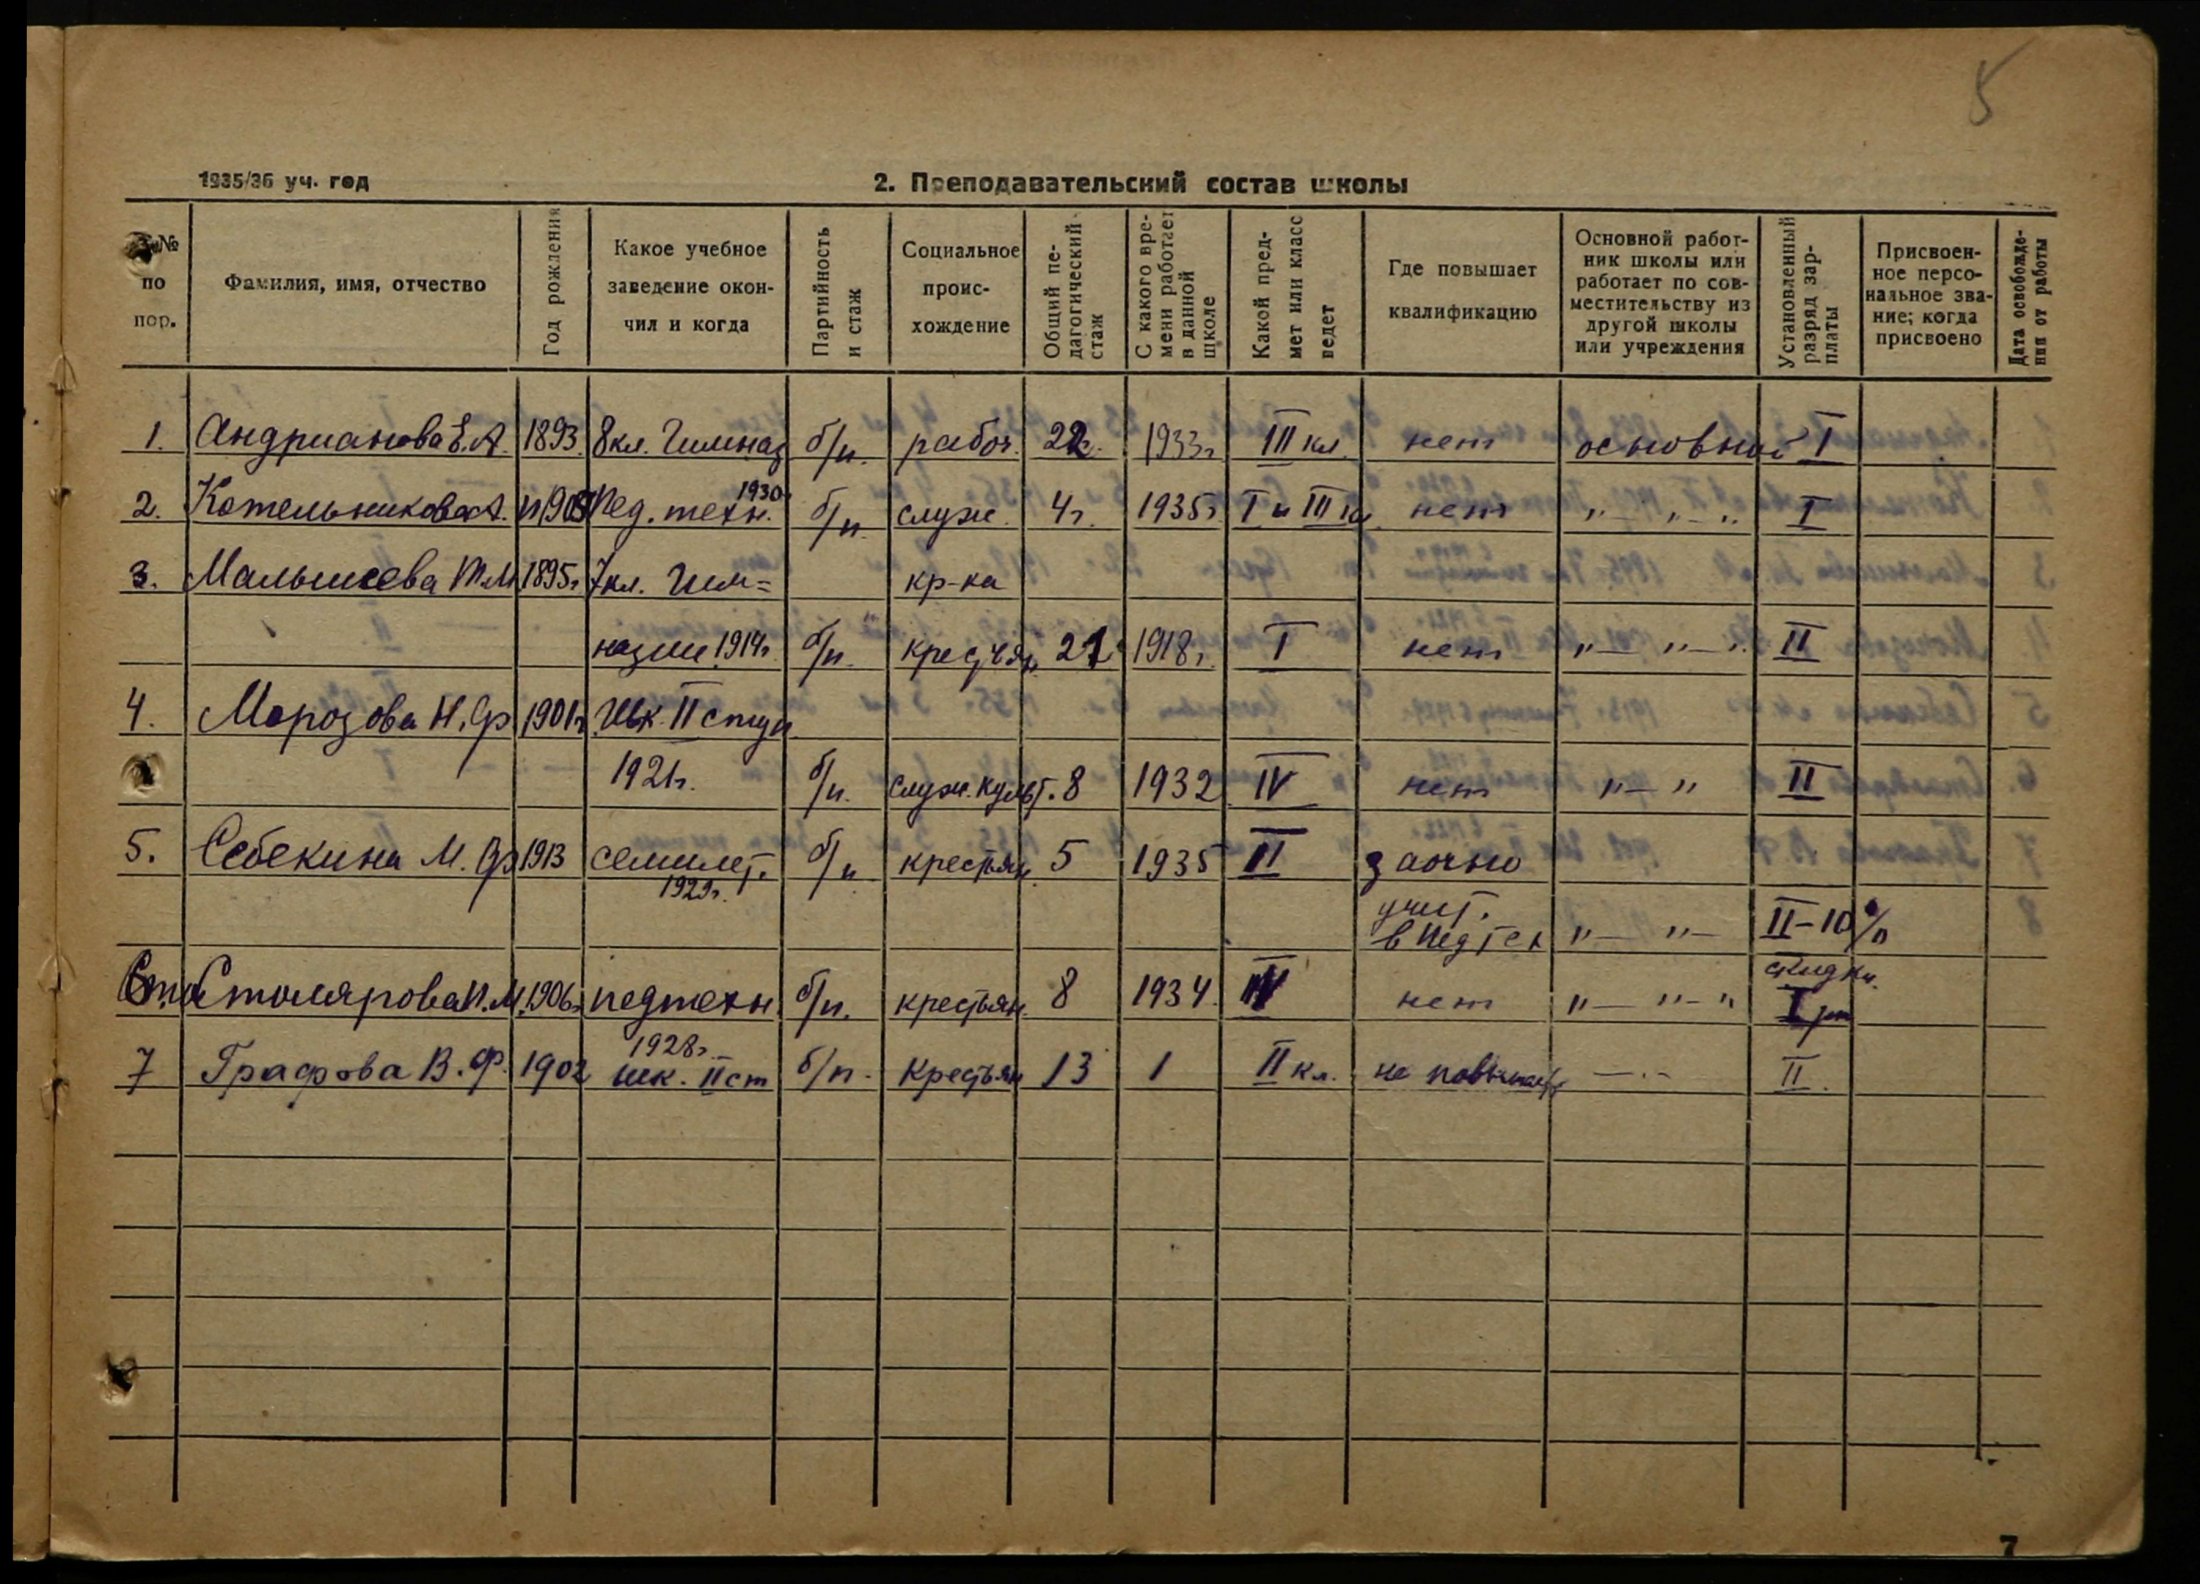 5
1935/36 уч. год
2. Преподавательский состав школы
№ по пор.
Фамилия, имя, отчество
Год рождения
Какое учебное заведение окончил и когда
Партийность и стаж
Социальное происхождение
Общий педагогический стаж
С какого времени работает в данной школе
Какой предмет или класс ведет
Где повышает квалификацию
Основной работник школы или работает по совместительству из другой школы или учреждения
Установленный разряд зарплаты
Присвоенное персональное звание; когда присвоено
Дата освобождения от работы
1. Андрианова Е.А. 1893 8 кл. Гимназ б/п. рабоч. 22г. 1933г III кл. нет основной I
1930
2. Котельникова А. 1905 Пед. техн. б/п. служ. 4г. 1935г I и III кл нет " — " — " I
3. Малышева М 1895г 7 кл. Гим= кр-ка
назии 1914г. б/п. крестьян. 21 1918г. I нет " — " — " II
4. Морозова Н. Ф 1901г Шк. II ступ
1921г. б/п. служ. культ. 8 1932 IV нет " — " II
5. Себекина М. Ф 1913 семилет. б/п крестьян. 5 1935 II заочно
1929г.
учит. в Педтех " — " — II — 10%
скидки
6. Столярова М. 1906г педтехн б/п. крестьян. 8 1934. IV нет " — " — " I
1928г.
7 Графова В. Ф. 1902 шк. II ст б/п. Крестьян 13 1 II кл. не повышает — . — II.
7